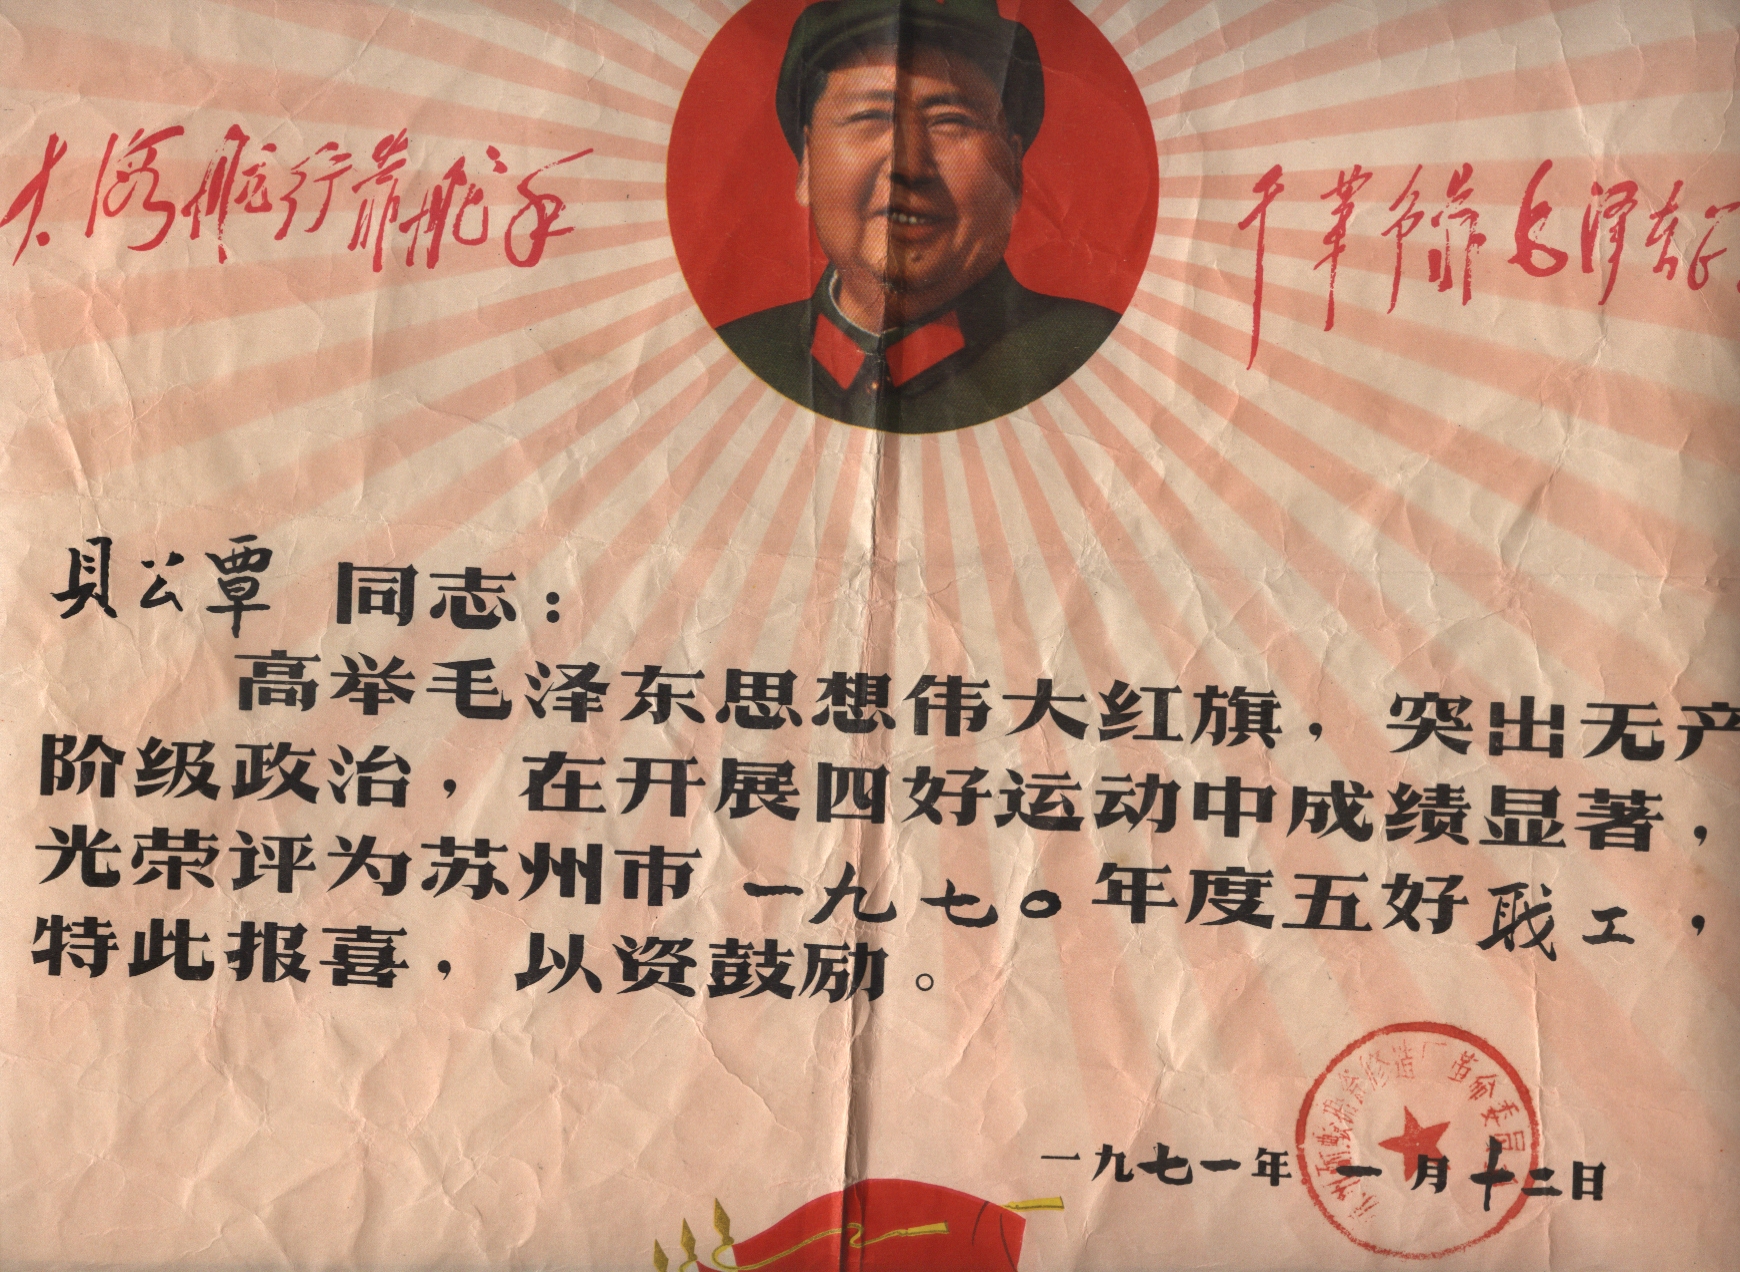 大海航行靠舵手
干革命靠毛泽东思
貝公覃 同志：
高举毛泽东思想伟大红旗，突出无产
阶级政治，在开展四好运动中成绩显著，
光荣评为苏州市一九七〇年度五好職工，
特此报喜，以资鼓励。
修造厂革命委员
一九七一年一月十二日